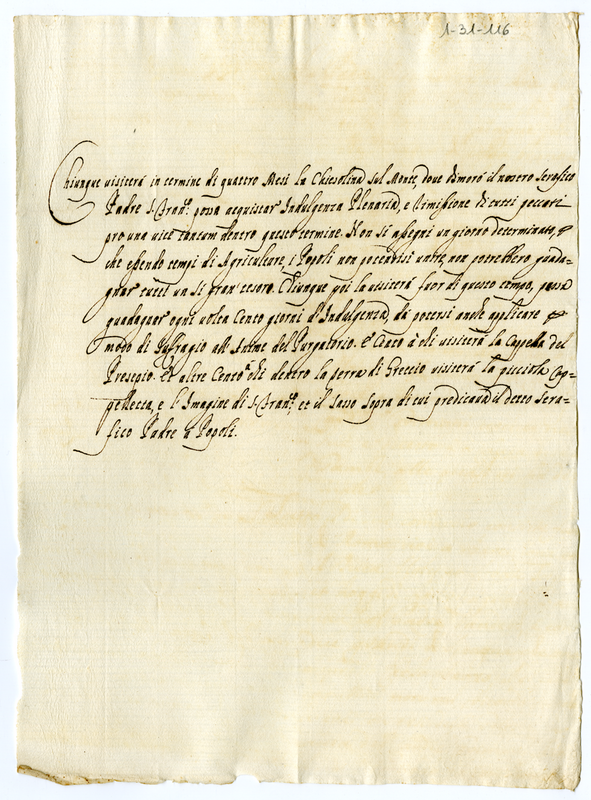 1-31-116
Chiunque visiterà in termine di quattro Mesi la Chiesolina sul Monte, dove dimorò il nostro Serafico
Padre S. Fran.co possa acquistar Indulgenza Plenaria, e remissione di tutti peccati
pro una vice tantum dentro questo termine. Non si assegni un giorno determinato,
che essendo tempi di Agricolture, i Popoli non potendosi unire, non potrebbero guada-
gnar tutti un sì gran tesoro. Chiunque poi la visiterà fuor di questo tempo, possa
guadagnar ogni volta Cento giorni d'Indulgenza, da potersi anche applicare
modo di suffragio all'Anime del Purgatorio. E Cento à chi visiterà la Cappella del
Presepio. Et altre Cento à chi dentro la terra di Greccio visiterà la picciola Cap-
pelletta, e l'Imagine di S. Fran.co, et il Sasso sopra di cui predicava il detto Sera-
fico Padre a Popoli.